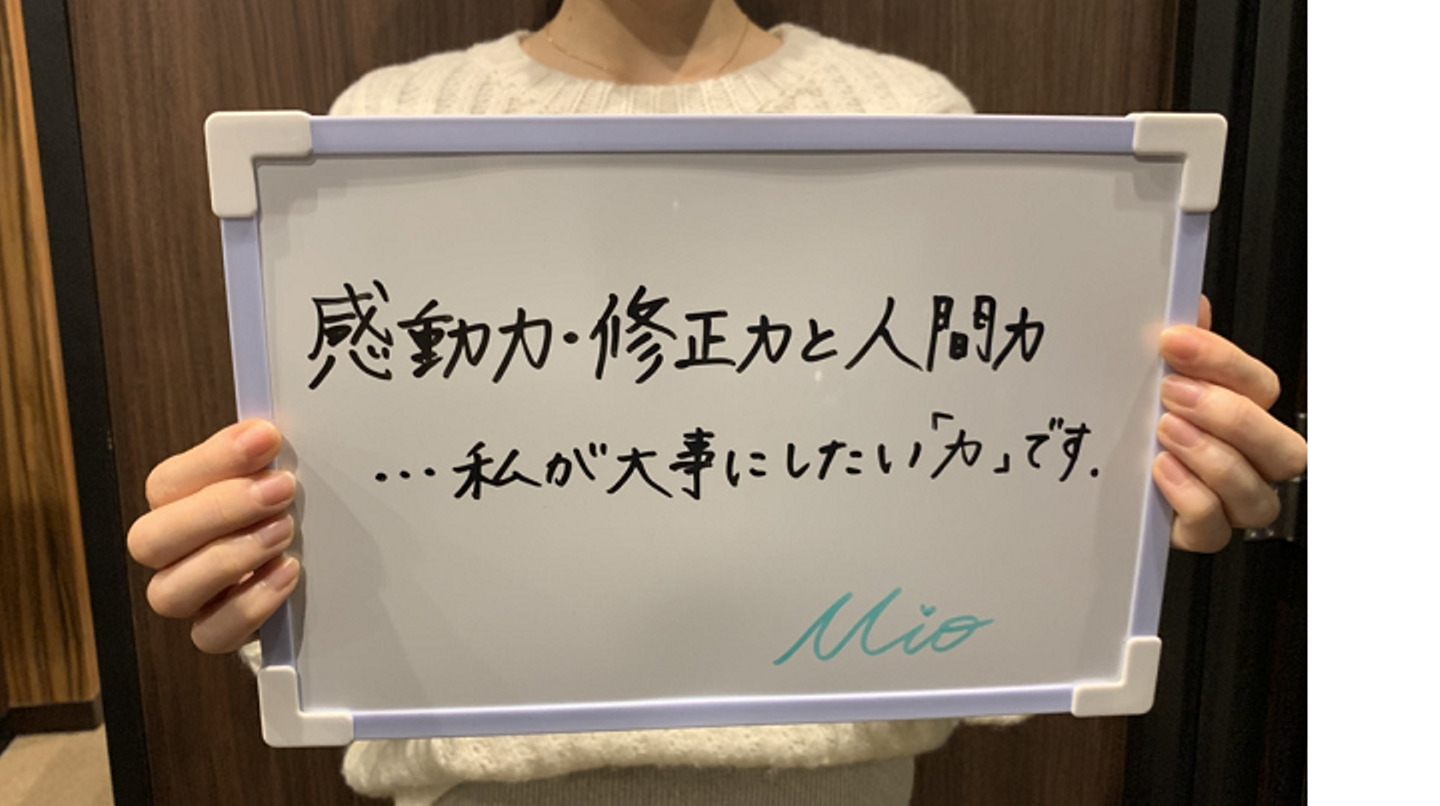 感動力・修正力と人間力
…私が大事にしたい「力」です.
Mio